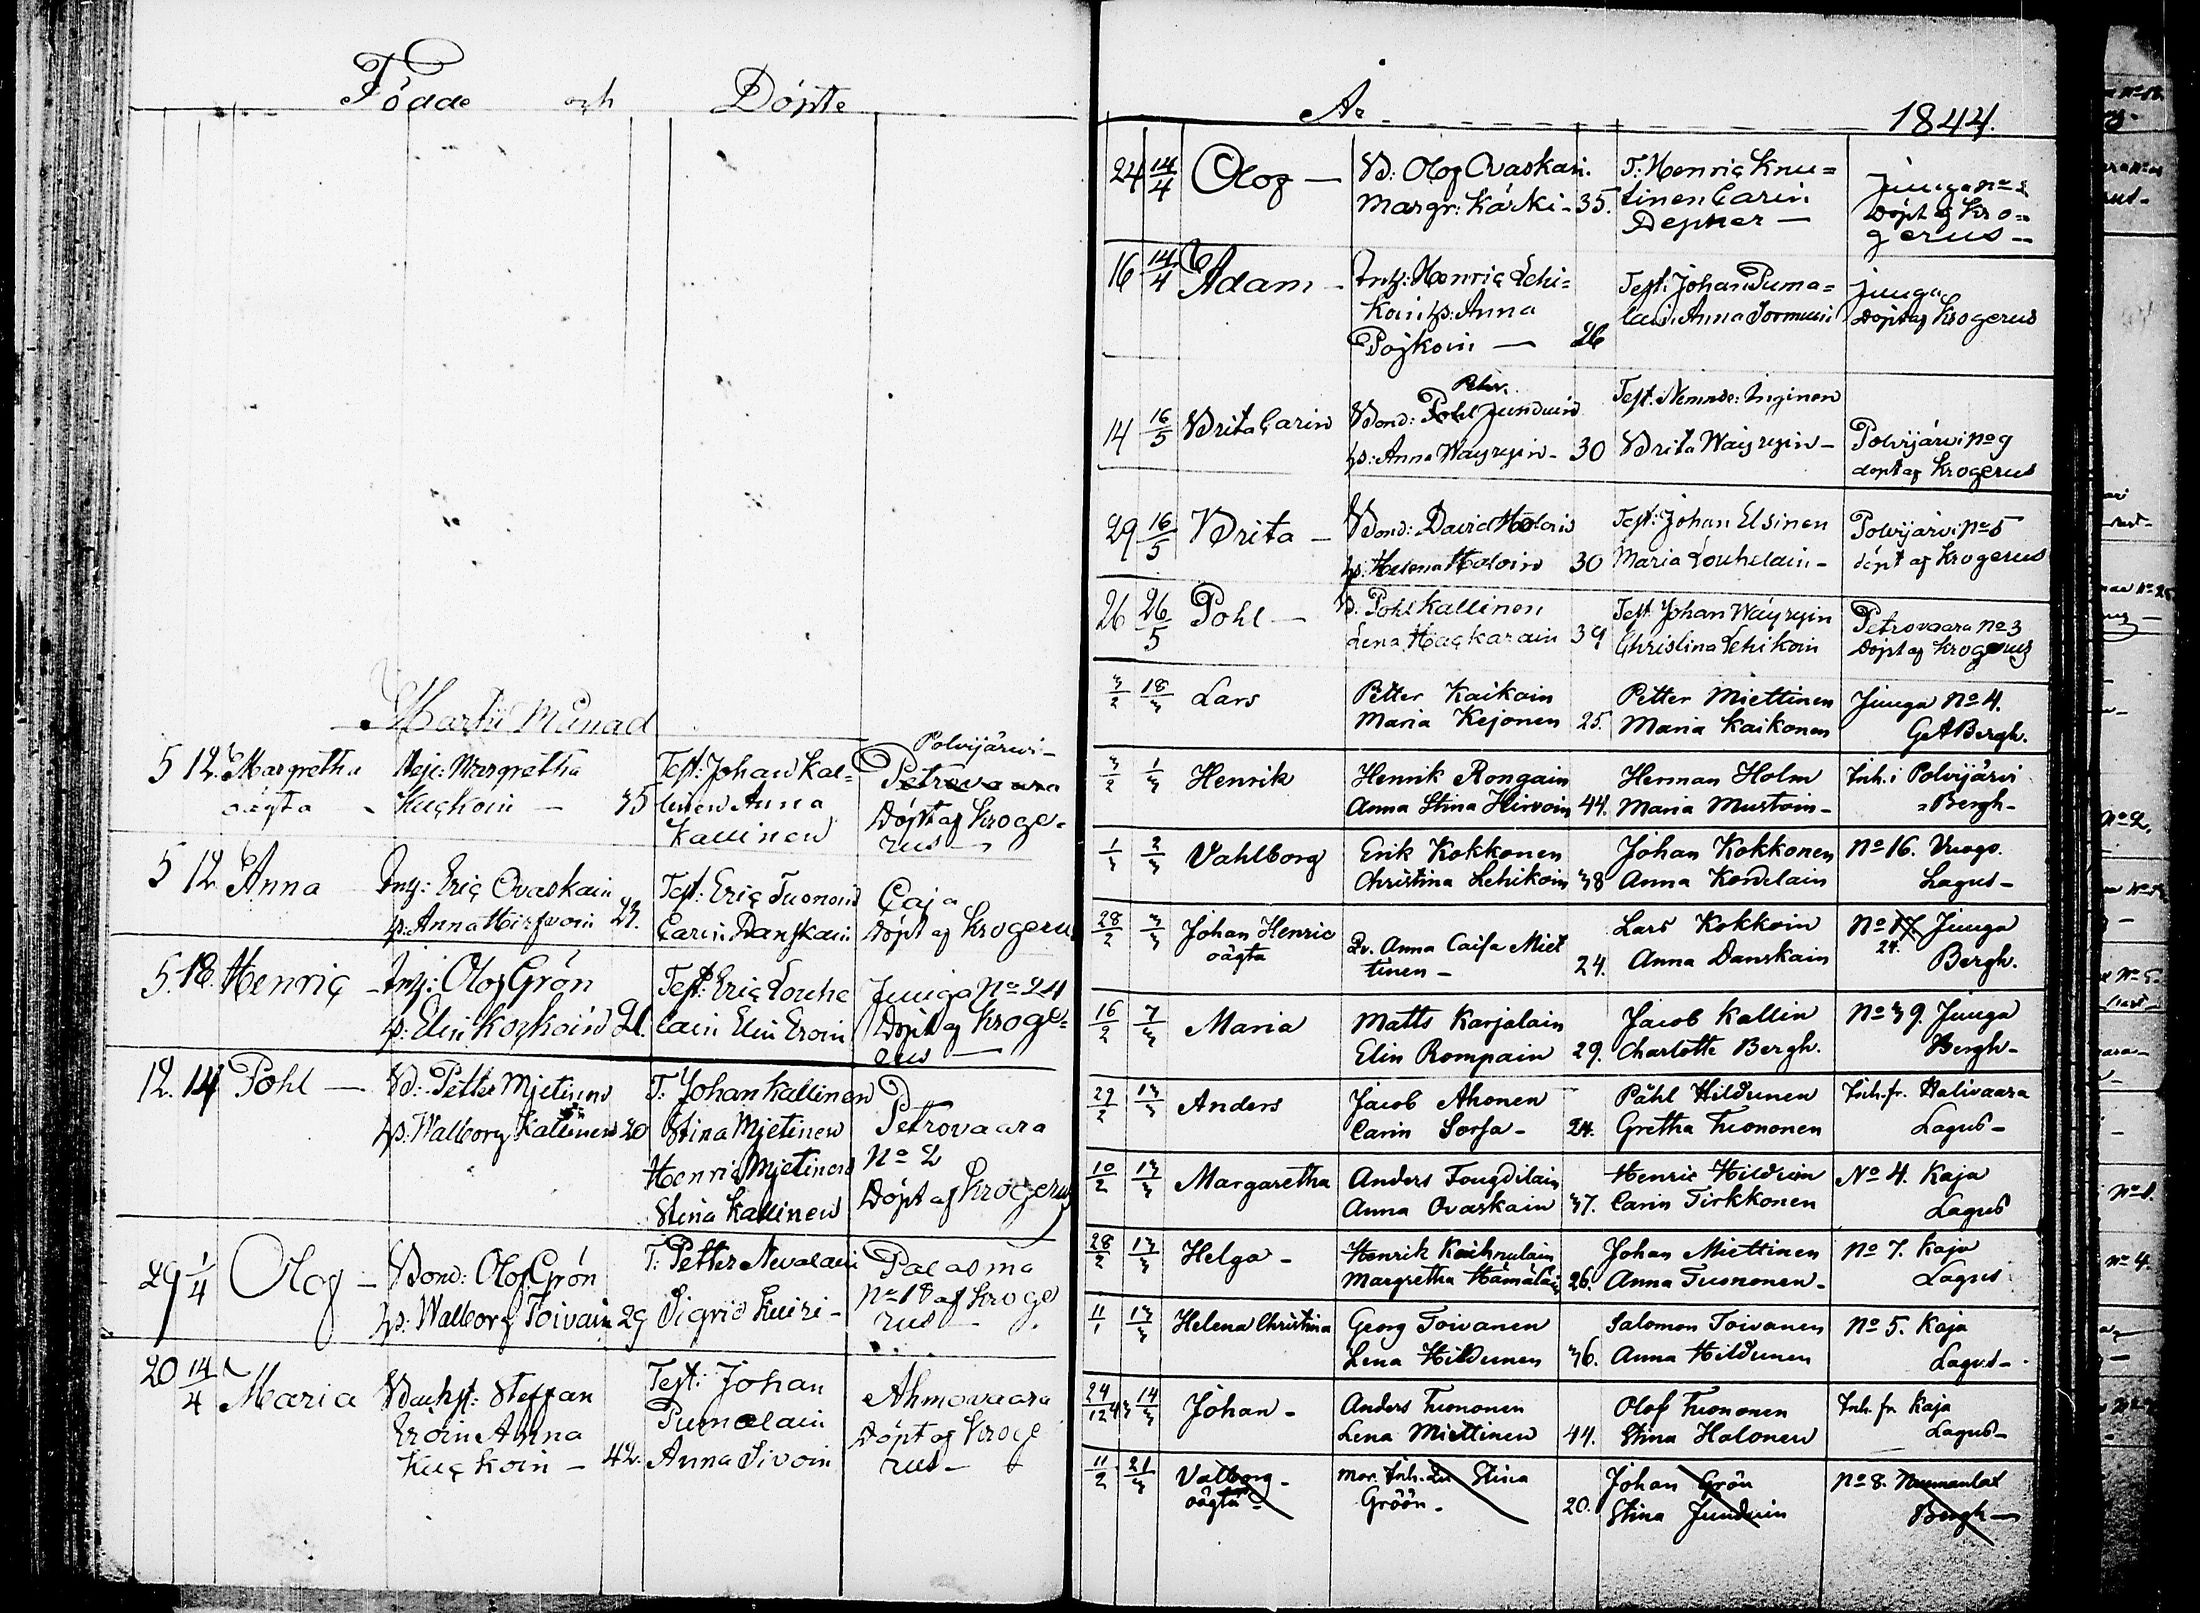 Födde och Döpte
Martii Månad
5 12. Margretha Neje: Margretha 35 Test: Johan Kal= Polvijärvi
oägta Kuckoin linen Anna Petrovaara
Kallinen Döpt af Kroge=
rus
5 12 Anna Inh: Eric Ovaskain 23. Test: Eric Tuonoin Caja
hs: Anna Hirfwoin Carin Danskain Döpt af Krogerus
5. 18. Henric Inh: Olof Grön Test: Eric Louhe Juuga No 24
hs: Elin Korkoin 21. lain Elin Eroin Döpt af Kroge=
rus
12. 14 Pohl B: Petter Mjetinen T: Johan Kallinen Petrovaara
hs: Walborg Kallinen 20 Stina Mjetinen No 2
Henric Mjetinen Döpt af Krogerus
Stina Kallinen
29 1/4 Olof Bond: Olof Grön T: Petter Nevalain Palasma
hs: Walborg Toivain 29 Sigrid Kuiri No 18 af Kroge
rus
20 14/4 Maria Backst: Steffan Test: Johan Ahmovaara
Eroin Anna Pumalain Döpt af Kroge
Kuckoin 42. Anna Sivoin rus
År 1844.
24 14/4 Olof B: Olof Ovaskain. T: Henric Knu= Juuga No 2
Margr: Kärki 35. tinen Carin Döpt af Kro=
Depner gerus
16 14/4 Adam Inh: Henric Lehi= Test: Johan Puma= Juuga
koin hs: Anna lain Anna Sormuin Döpt af Krogerus
Pojkoin 26
14 16/5 Brita Carin Bond: Pohl Petter Junduin Test: Nemnde: Inginen
hs: Anna Wäyryin 30 Brita Wäyryin Polvijärvi No 9
döpt af Krogerus
29 16/5 Brita Bond: David Holoin Test: Johan Elsinen Polvijärvi No 5
hs: Helena Holoin 30 Maria Louhelain döpt af Krogerus
26 26/5 Pohl B. Pohl Kallinen Test Johan Wäyryin Petrovaara No 3
Lena Hackarain 39 Christina Lehikoin Döpt af Krogerus
3/2 18/3 Lars Petter Kaikain Petter Miettinen Juuga No 4.
Maria Kejonen 25. Maria Kaikonen GABergh.
3/2 1/3 Henrik Henrik Rongain Herman Holm Inh. i Polvijärvi
Anna Stina Hirvoin 44. Maria Mustoin Bergh
1/3 2/3 Vahlborg Erik Kokkonen Johan Kokkonen No 16. Vuogo.
Christina Lehikoin 38 Anna Kordelain Lagus
28/2 3/3 Johan Henric Pr. Anna Caisa Miet Lars Kokkoin No 17 Juuga
oägta tinen 24. Anna Danskain 24. Bergh.
16/2 7/3 Maria Matts Karjalain Jacob Kallin No 39. Juuga
Elin Rompain 29. Charlotte Bergh. Bergh
27/2 13/3 Anders Jacob Ahonen Påhl Hildunen Inh. fr. Halivaara
Carin Sorsa 24. Gretha Tuononen Lagus
10/2 13/3 Margaretha Anders Fougdilain Henric Hilduin No 4. Kaja
Anna Ovaskain 37. Carin Tirkkonen Lagus
28/2 13/3 Helga Henrik Kaihnulain Johan Miettinen No 7. Kaja
Margretha Hämäläin 26. Anna Tuononen Lagus
11/1 13/3 Helena Christina Georg Toivanen Salomon Toivanen No 5. Kaja
Lena Hildunen 36. Anna Hildunen Lagus
24/12 43 14/3 Johan Anders Tuononen Olof Tuononen Inh. fr. Kaja
Lena Miettinen 44. Stina Halonen Lagus
11/2 21/3 Valborg mor. Inh. Stina Johan Grön No 8.
oägta Gröön 20. Stina Junduin Bergh